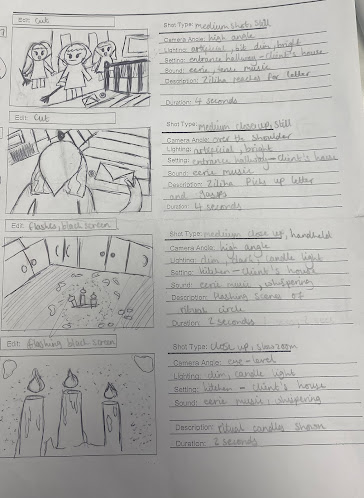 Edit: Cut
Shot Type: medium shot, still
Camera Angle: high angle
Lighting: artificial, bit dim, bright
Setting: entrance hallway - client's house
Sound: eerie, tense music
Description: Zilina reaches for letter
Duration: 4 seconds
Edit: Cut
Shot Type: medium close up, still
Camera Angle: over the shoulder
Lighting: artificial, bright
Setting: entrance hallway - client's house
Sound: eerie music
Description: Zilina picks up letter
and gasps
Duration: 4 seconds
Edit: flashes, black screen
Shot Type: medium close up, handheld
Camera Angle: high angle
Lighting: dim, dark, candle light
Setting: kitchen - client's house
Sound: eerie music, whispering
Description: flashing scenes of
ritual circle
Duration: 2 seconds
Edit: flashing black screen
Shot Type: close up, slow zoom
Camera Angle: eye-level
Lighting: dim, candle light
Setting: kitchen - client's house
Sound: eerie music, whispering
Description: ritual candles shown
Duration: 2 seconds